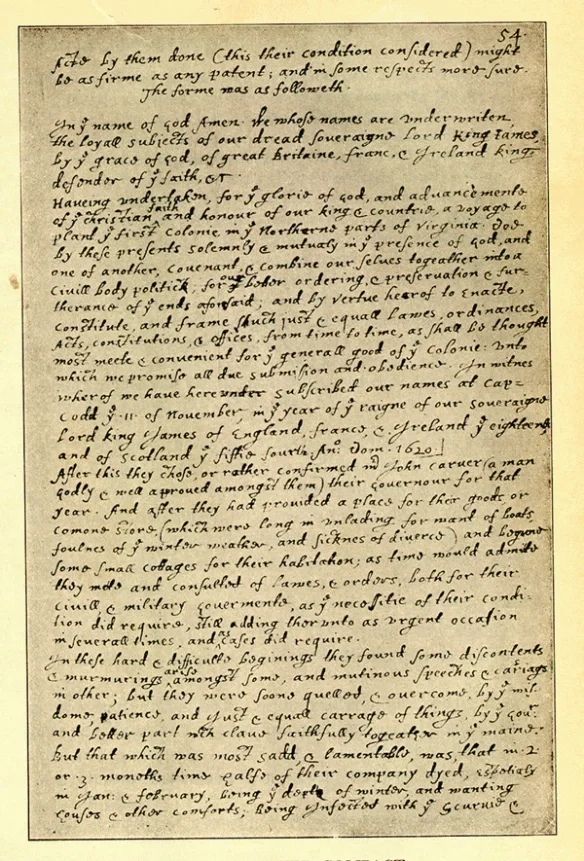 54.
Acts by them done (this their condition considered) might
be as firme as any patent; and in some respects more sure.
The forme was as followeth.
In yͤ name of god Amen. We whose names are underwriten,
the loyall subjects of our dread soveraigne Lord King James,
by yͤ grace of god, of great Britaine, franc, & Ireland king,
defender of yͤ faith, &c.
Haveing undertaken, for yͤ glorie of god, and advancemente
of yͤ christian faith and honour of our king & countrie, a voyage to
plant yͤ first colonie in yͤ Northerne parts of Virginia. Doe
by these presents solemnly & mutualy in yͤ presence of god, and
one of another, covenant, & combine our selves togeather into a
civill body politick; for our better ordering, & preservation & fur-
therance of yͤ ends aforesaid; and by vertue hearof to Enacte,
constitute, and frame shuch just & equall Lawes, ordinances,
Acts, constitutions, & offices, from time to time, as shall be thought
most meete & convenient for yͤ generall good of yͤ Colonie: unto
which we promise all due submission and obedience. In witnes
wherof we have hereunder subscribed our names at Cap-
Codd yͤ .11. of November, in yͤ year of yͤ raigne of our soveraigne
Lord king James of England, france, & Ireland yͤ eighteenth,
and of Scotland yͤ fiftie fourth. Anͦ: Dom. 1620.
After this they chose, or rather confirmed mͬ John carver (a man
godly & well aproved amongst them) their governour for that
year. And after they had provided a place for their goods, or
comone store (which were long in unlading, for want of boats
foulnes of yͤ winter weather, and sicknes of diverce) and begune
some small cottages for their habitation; as time would admitte
they mete and consulted of lawes, & orders, both for their
civill, & military govermente, as yͤ necessitie of their condi-
tion did require, still adding therunto as urgent occasion
in severall times, and as cases did require.
In these hard & difficulte beginings they found some discontents
& murmurings arise amongst some, and mutinous speeches & cariags
in other; but they were soone quelled, & overcome, by yͤ wis-
dome, patience, and just & equall carrage of things, by yͤ govͬ
and better part wch clave faithfully togeather in yͤ maine.
But that which was most sadd, & lamentable, was, that in .2.
or .3. moneths time halfe of their company dyed, espetialy
in Jan: & february, being yͤ depth of winter, and wanting
houses & other comforts; being Infected with yͤ scurvie &